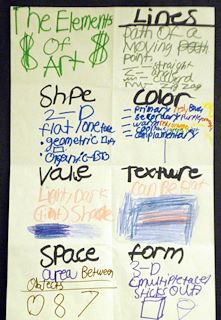 The Elements
$ Of $
Art
Lines
Path Of a
Moving
Point.
straight
zig zag
Shpe
2-D
flat/one face
• geometric
• organic
Color
- primary
- secondary
- warm
- cool
- complementary
Value
Light/Dark
(Tint) Shade
Texture
can be flat
Space
area Between
Objects
0 8 7
form
3-D
(multiple faces)
Sticks Out